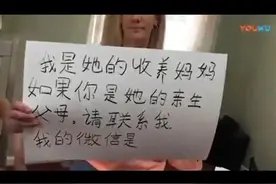 YOUKU
我是她的收养妈妈
如果你是她的亲生
父母，请联系我
我的微信是